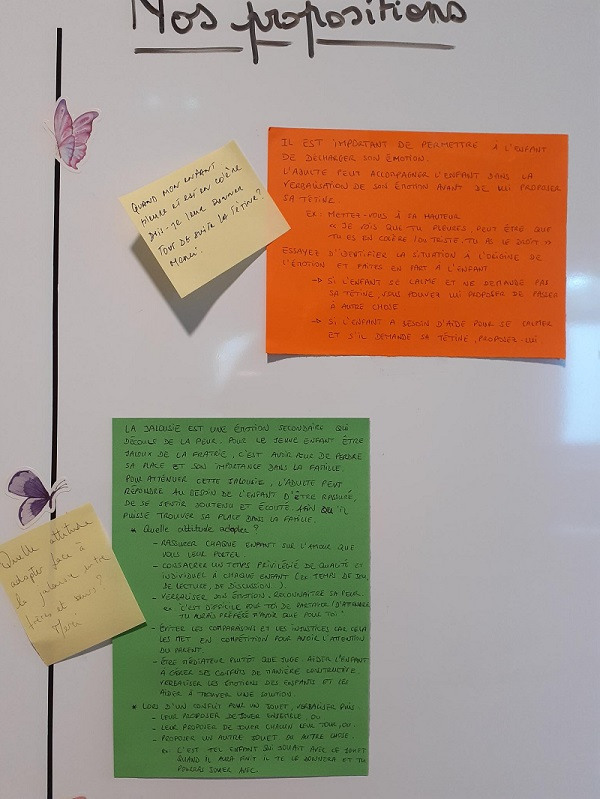 Nos propositions
QUAND MON ENFANT
PLEURE ET EST EN COLÈRE
DOIS-JE LEUR DONNER
TOUT DE SUITE LA TÉTINE ?
MERCI.
IL EST IMPORTANT DE PERMETTRE À L'ENFANT
DE DÉCHARGER SON ÉMOTION.
L'ADULTE PEUT ACCOMPAGNER L'ENFANT DANS LA
VERBALISATION DE SON ÉMOTION AVANT DE LUI PROPOSER
SA TÉTINE
EX: METTEZ-VOUS À SA HAUTEUR
« JE VOIS QUE TU PLEURES, PEUT ÊTRE QUE
TU ES EN COLÈRE (OU TRISTE) TU AS LE DROIT »
ESSAYEZ D'IDENTIFIER LA SITUATION À L'ORIGINE DE
L'ÉMOTION ET FAITES EN PART À L'ENFANT
→ SI L'ENFANT SE CALME ET NE DEMANDE PAS
SA TÉTINE, VOUS POUVEZ LUI PROPOSER DE PASSER
À AUTRE CHOSE
→ SI L'ENFANT A BESOIN D'AIDE POUR SE CALMER
ET S'IL DEMANDE SA TÉTINE, PROPOSEZ-LUI
Quelle attitude
adopter face à
la jalousie entre
frères et sœurs ?
Merci
LA JALOUSIE EST UNE ÉMOTION SECONDAIRE QUI
DÉCOULE DE LA PEUR. POUR LE JEUNE ENFANT ÊTRE
JALOUX DE LA FRATRIE, C'EST AVOIR PEUR DE PERDRE
SA PLACE ET SON IMPORTANCE DANS LA FAMILLE.
POUR ATTÉNUER CETTE JALOUSIE, L'ADULTE PEUT
RÉPONDRE AU BESOIN DE L'ENFANT D'ÊTRE RASSURÉ,
DE SE SENTIR SOUTENU ET ÉCOUTÉ AFIN QU'IL
PUISSE TROUVER SA PLACE DANS LA FAMILLE.
* Quelle attitude adopter ?
- RASSURER CHAQUE ENFANT SUR L'AMOUR QUE
VOUS LEUR PORTER
- CONSACRER UN TEMPS PRIVILÉGIÉ DE QUALITÉ ET
INDIVIDUEL À CHAQUE ENFANT (EX TEMPS DE JEU,
DE LECTURE, DE DISCUSSION.)
- VERBALISER SON ÉMOTION, RECONNAÎTRE SA PEUR.
ex "C'EST DIFFICILE POUR TOI DE PARTAGER / D'ATTENDRE
TU AURAIS PRÉFÉRÉ M'AVOIR QUE POUR TOI"
- ÉVITER LES COMPARAISONS ET LES INJUSTICES CAR CELA
LES MET EN COMPÉTITION POUR AVOIR L'ATTENTION
DU PARENT.
- ÊTRE MÉDIATEUR PLUTÔT QUE JUGE. AIDER L'ENFANT
À GÉRER SES CONFLITS DE MANIÈRE CONSTRUCTIVE
VERBALISER LES ÉMOTIONS DES ENFANTS ET LES
AIDER À TROUVER UNE SOLUTION.
* LORS D'UN CONFLIT POUR UN JOUET, VERBALISER PUIS:
- LEUR PROPOSER DE JOUER ENSEMBLE, OU
- LEUR PROPOSER DE JOUER CHACUN LEUR TOUR, OU
- PROPOSER UN AUTRE JOUET OU AUTRE CHOSE.
ex: C'EST TEL ENFANT QUI JOUAIT AVEC LE JOUET
QUAND IL AURA FINI IL TE LE DONNERA ET TU
POURRAS JOUER AVEC.